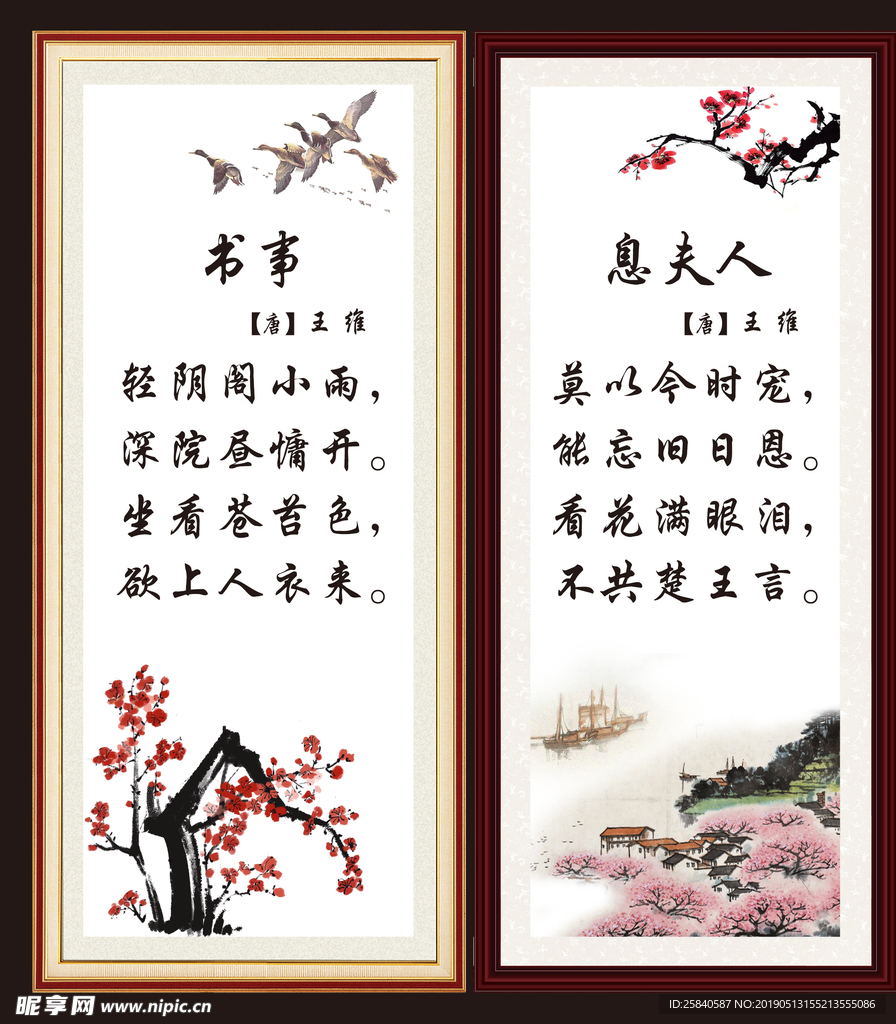 书事
【唐】王 维
轻阴阁小雨，
深院昼慵开。
坐看苍苔色，
欲上人衣来。
息夫人
【唐】王 维
莫以今时宠，
能忘旧日恩。
看花满眼泪，
不共楚王言。
昵享网 www.nipic.cn
ID:25840587 NO:20190513155213555086